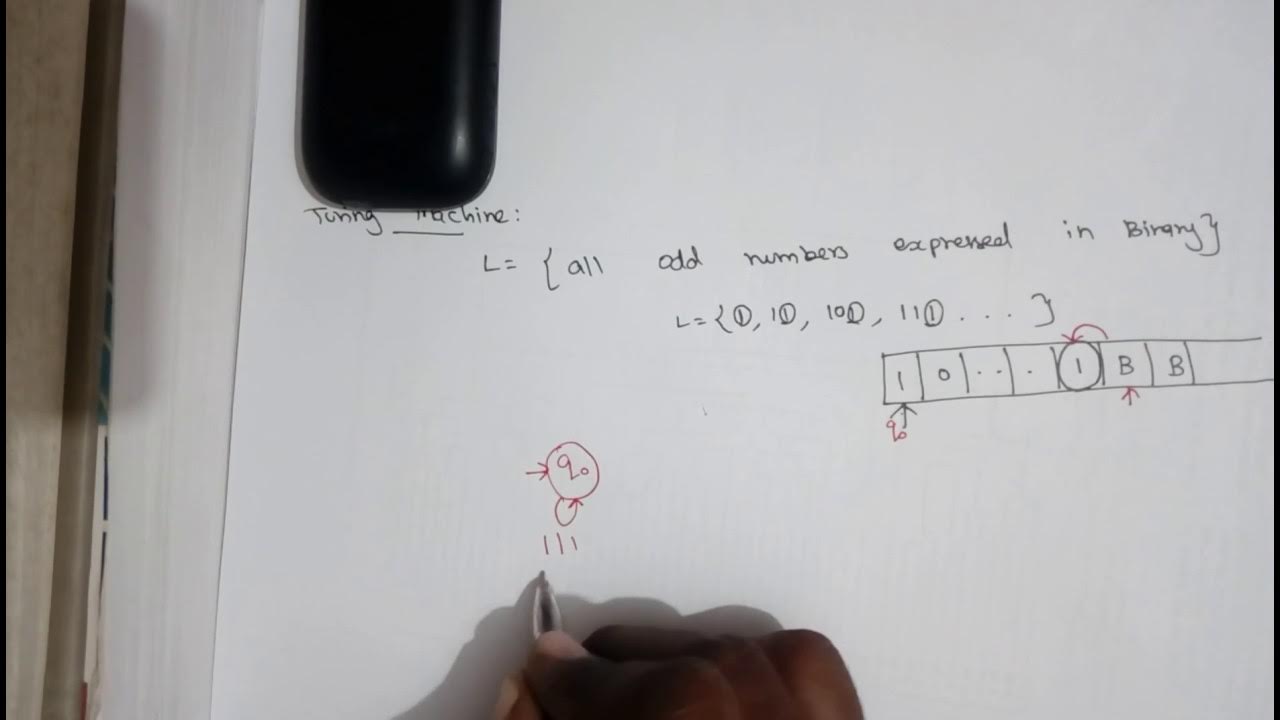 Turing Machine:
L = { all odd numbers expressed in Binary }
L = { 1, 11, 101, 111 . . . }
1 0 . . . 1 B B
q₀
q₀
1/1